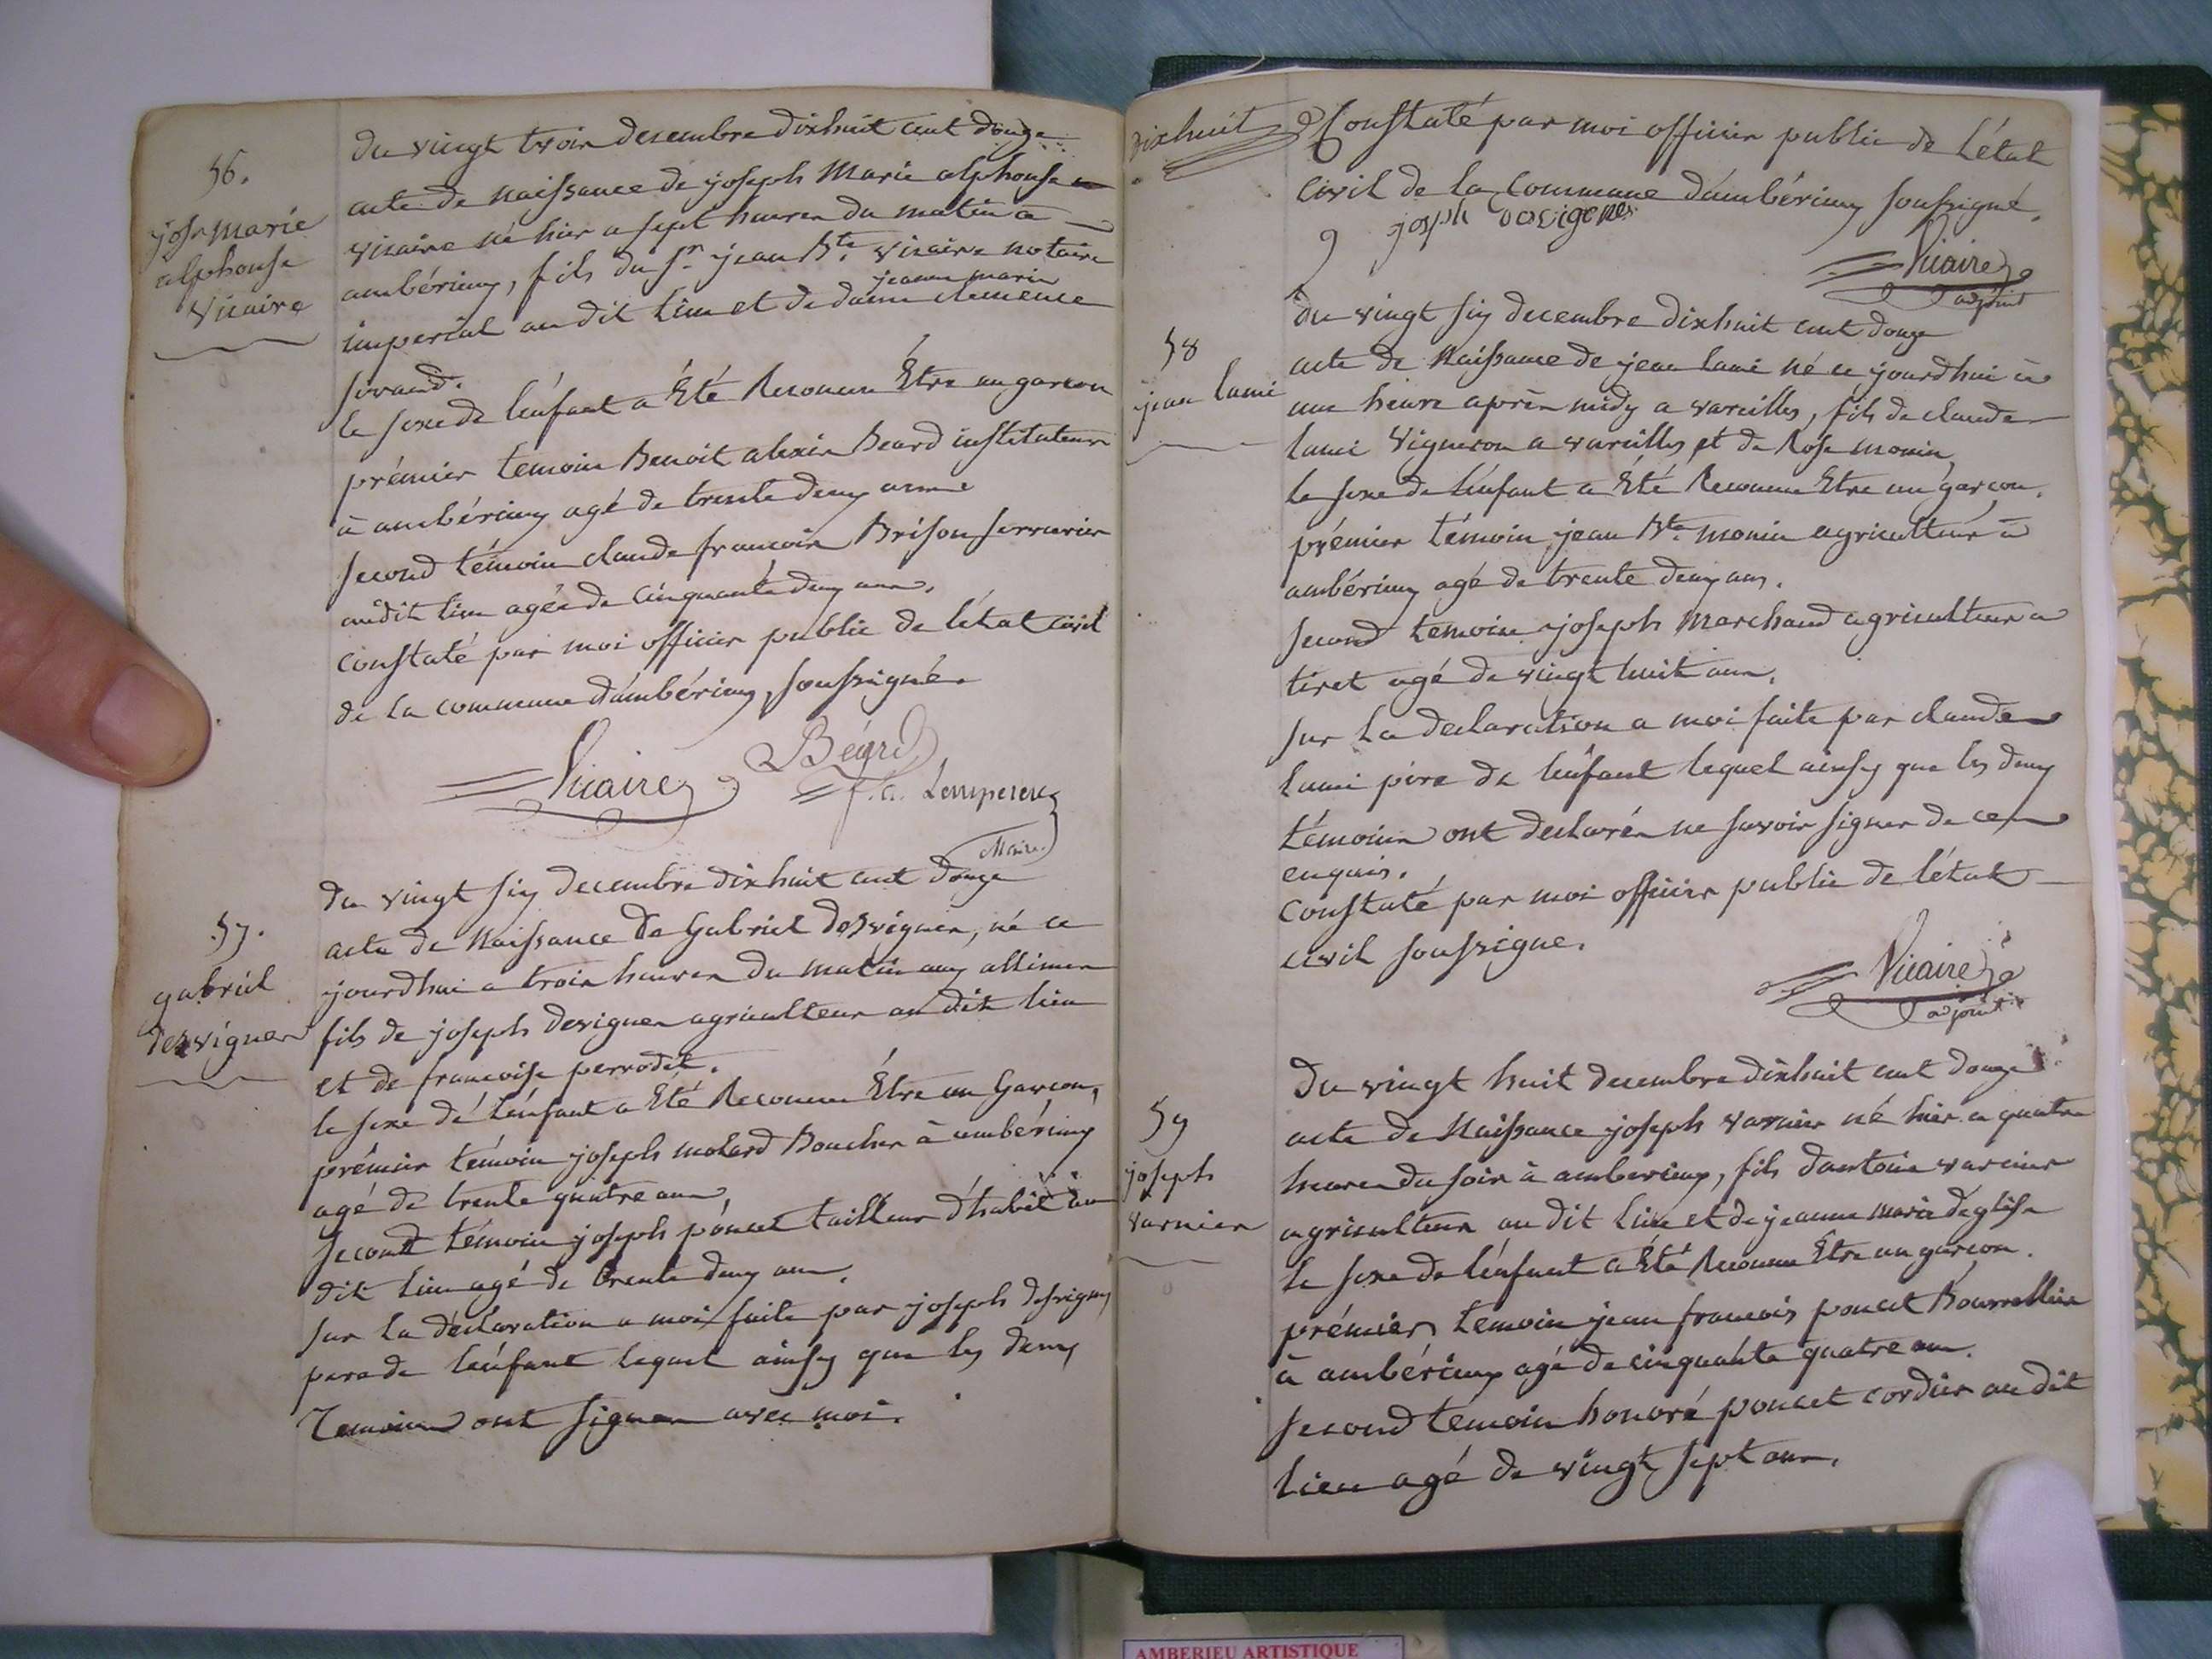 56.
jos. marie
alphonse
Vicaire
du vingt trois decembre dixhuit cent douze
acte de naissance de joseph Marie alphonse
vicaire né hier a sept heures du matin a
ambérieux, fils du Sr. jean Bte. vicaire notaire
jeanne marie
imperial au dit lieu et de dame clemence
sirand.
le sexe de lénfant a Été Reconnu Être un garcon
prémier temoin Benoit alexis Beard instituteur
à ambérieux agé de trente deux ans
second témoin claude francois Brison serrurier
audit lieu agée de cinquante deux ans.
constaté par moi officier public de létat civil
de la commune dámbérieux, soussigné.
Vicaire Béard
Lempereur
Maire
57.
gabriel
desvignes
du vingt six decembre dixhuit cent douze
acte de Naissance de Gabriel desvignes, né ce
jourdhui a trois heures du matin aux allimes
fils de joseph desvignes agriculteur au dit lieu
et de francoise perrodet.
le sexe dé lénfant a Été Reconnu Être un Garcon,
prémier témoin joseph molard Boucher à ambérieux
agé de trente quatre ans,
second témoin joseph poncet tailleur d'habit au
dit lieu agé de trente deux ans.
sur la déclaration a moi faite par joseph desvignes
pere de lénfant lequel ainsy que les deux
Temoins ont signer avec moi.
dixhuit
Constaté par moi officier public de Létat
civil de la Commune dámbérieux soussigné.
joseph
Vicaire
adjoint
58
jean lami
du vingt six decembre dixhuit cent douze
acte de Naissance de jean lami né ce jourdhui à
une heure après midy a vareilles, fils de claude
lami Vigneron a vareilles et de Rose monin,
le sexe de lénfant a Été Reconnu Etre un garcon.
prémier témoin jean Bte. monin agriculteur à
ambérieux agé de trente deux ans.
second temoin joseph Marchand agriculteur a
tiret agé de vingt huit ans.
sur la declaration a moi faite par claude
lami père de lénfant lequel ainsy que les deux
témoins ont declarés ne savoir signer de ce
enquis.
constaté par moi officier public de létat
civil soussigne.
Vicaire
adjoint
59
joseph
varnier
du vingt huit decembre dixhuit cent douze
acte de Naissance joseph varnier né hier a quatre
heures du soir à amberieux, fils dantoine varnier
agriculteur au dit lieu et de jeanne marie deglise
le sexe de lénfant a Été Reconnu Être un garcon.
prémier temoin jean francois poncet Bourrellier
à ambérieux agé de cinquante quatre ans.
second témoin honoré poncet cordier au dit
lieu agé de vingt sept ans.
AMBERIEU ARTISTIQUE